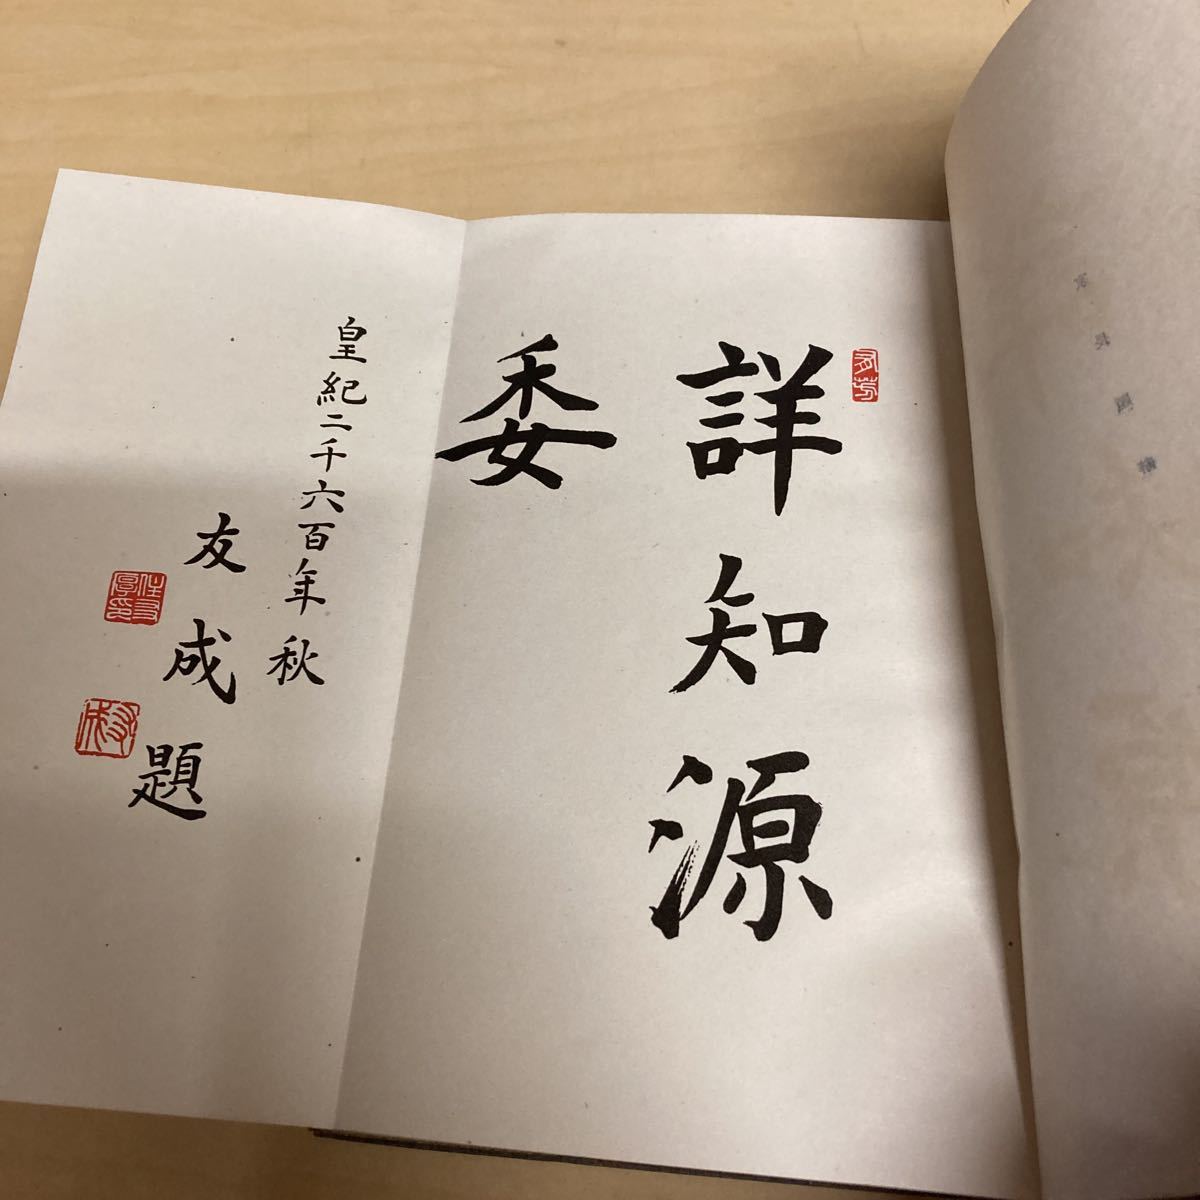 詳知源
委
皇紀二千六百年秋
友成題